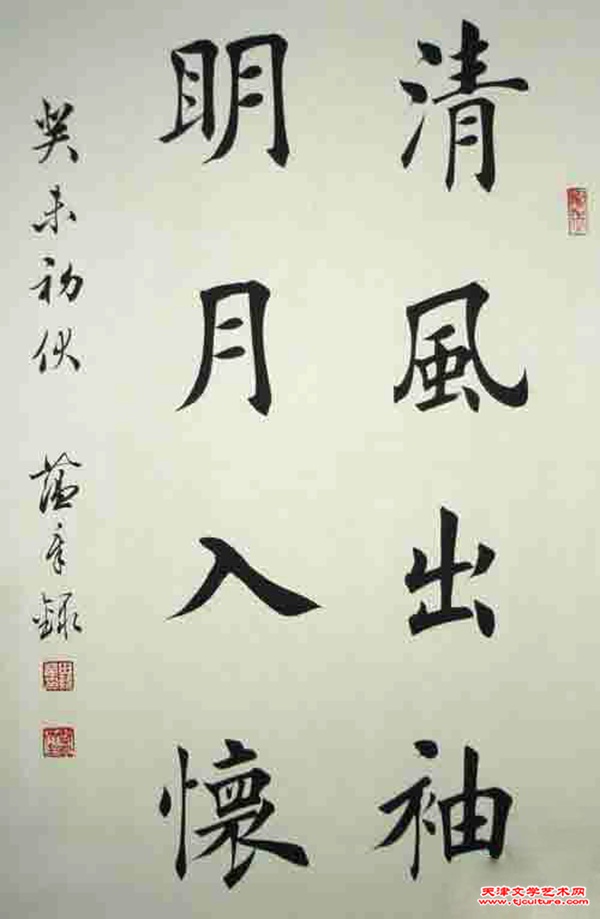 清風出袖
明月入懷
癸未初伏 蕴章錄
天津文学艺术网
www.tjculture.com